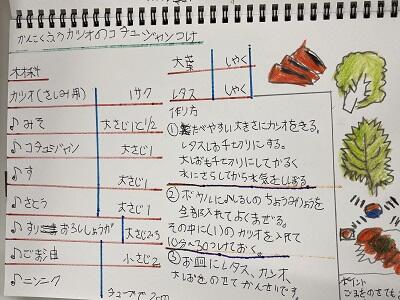 かんこくふうカツオのコチュジャンつけ
材料
カツオ(さしみ用) 1サク
♪みそ 大さじ1と1/2
♪コチュジャン 大さじ1
♪す 大さじ1
♪さとう 大さじ1
♪すりおろししょうが 大さじ2~3
♪ごま油 小さじ2
♪ニンニク チューブで2cm
大葉 しゃく
レタス しゃく
作り方
①たべやすい大きさにカツオをきる。
レタスも手でちぎりにする。
大葉も千切りにしてかるく
水にさらしてから水気をしぼる。
②ボウルに♪しるしのちょうみりょうを
全部入れてよくまぜる。
その中に(1)のカツオを入れて
10分~30つけておく。
③お皿にレタス、カツオ、
大葉をのせてかんせいです。
ポイント
ごまをのせても